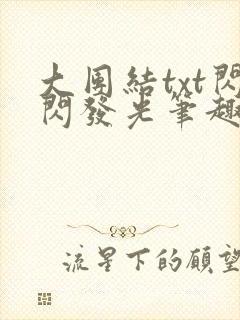 大團結txt閃
閃發光筆趣
流星下的願望